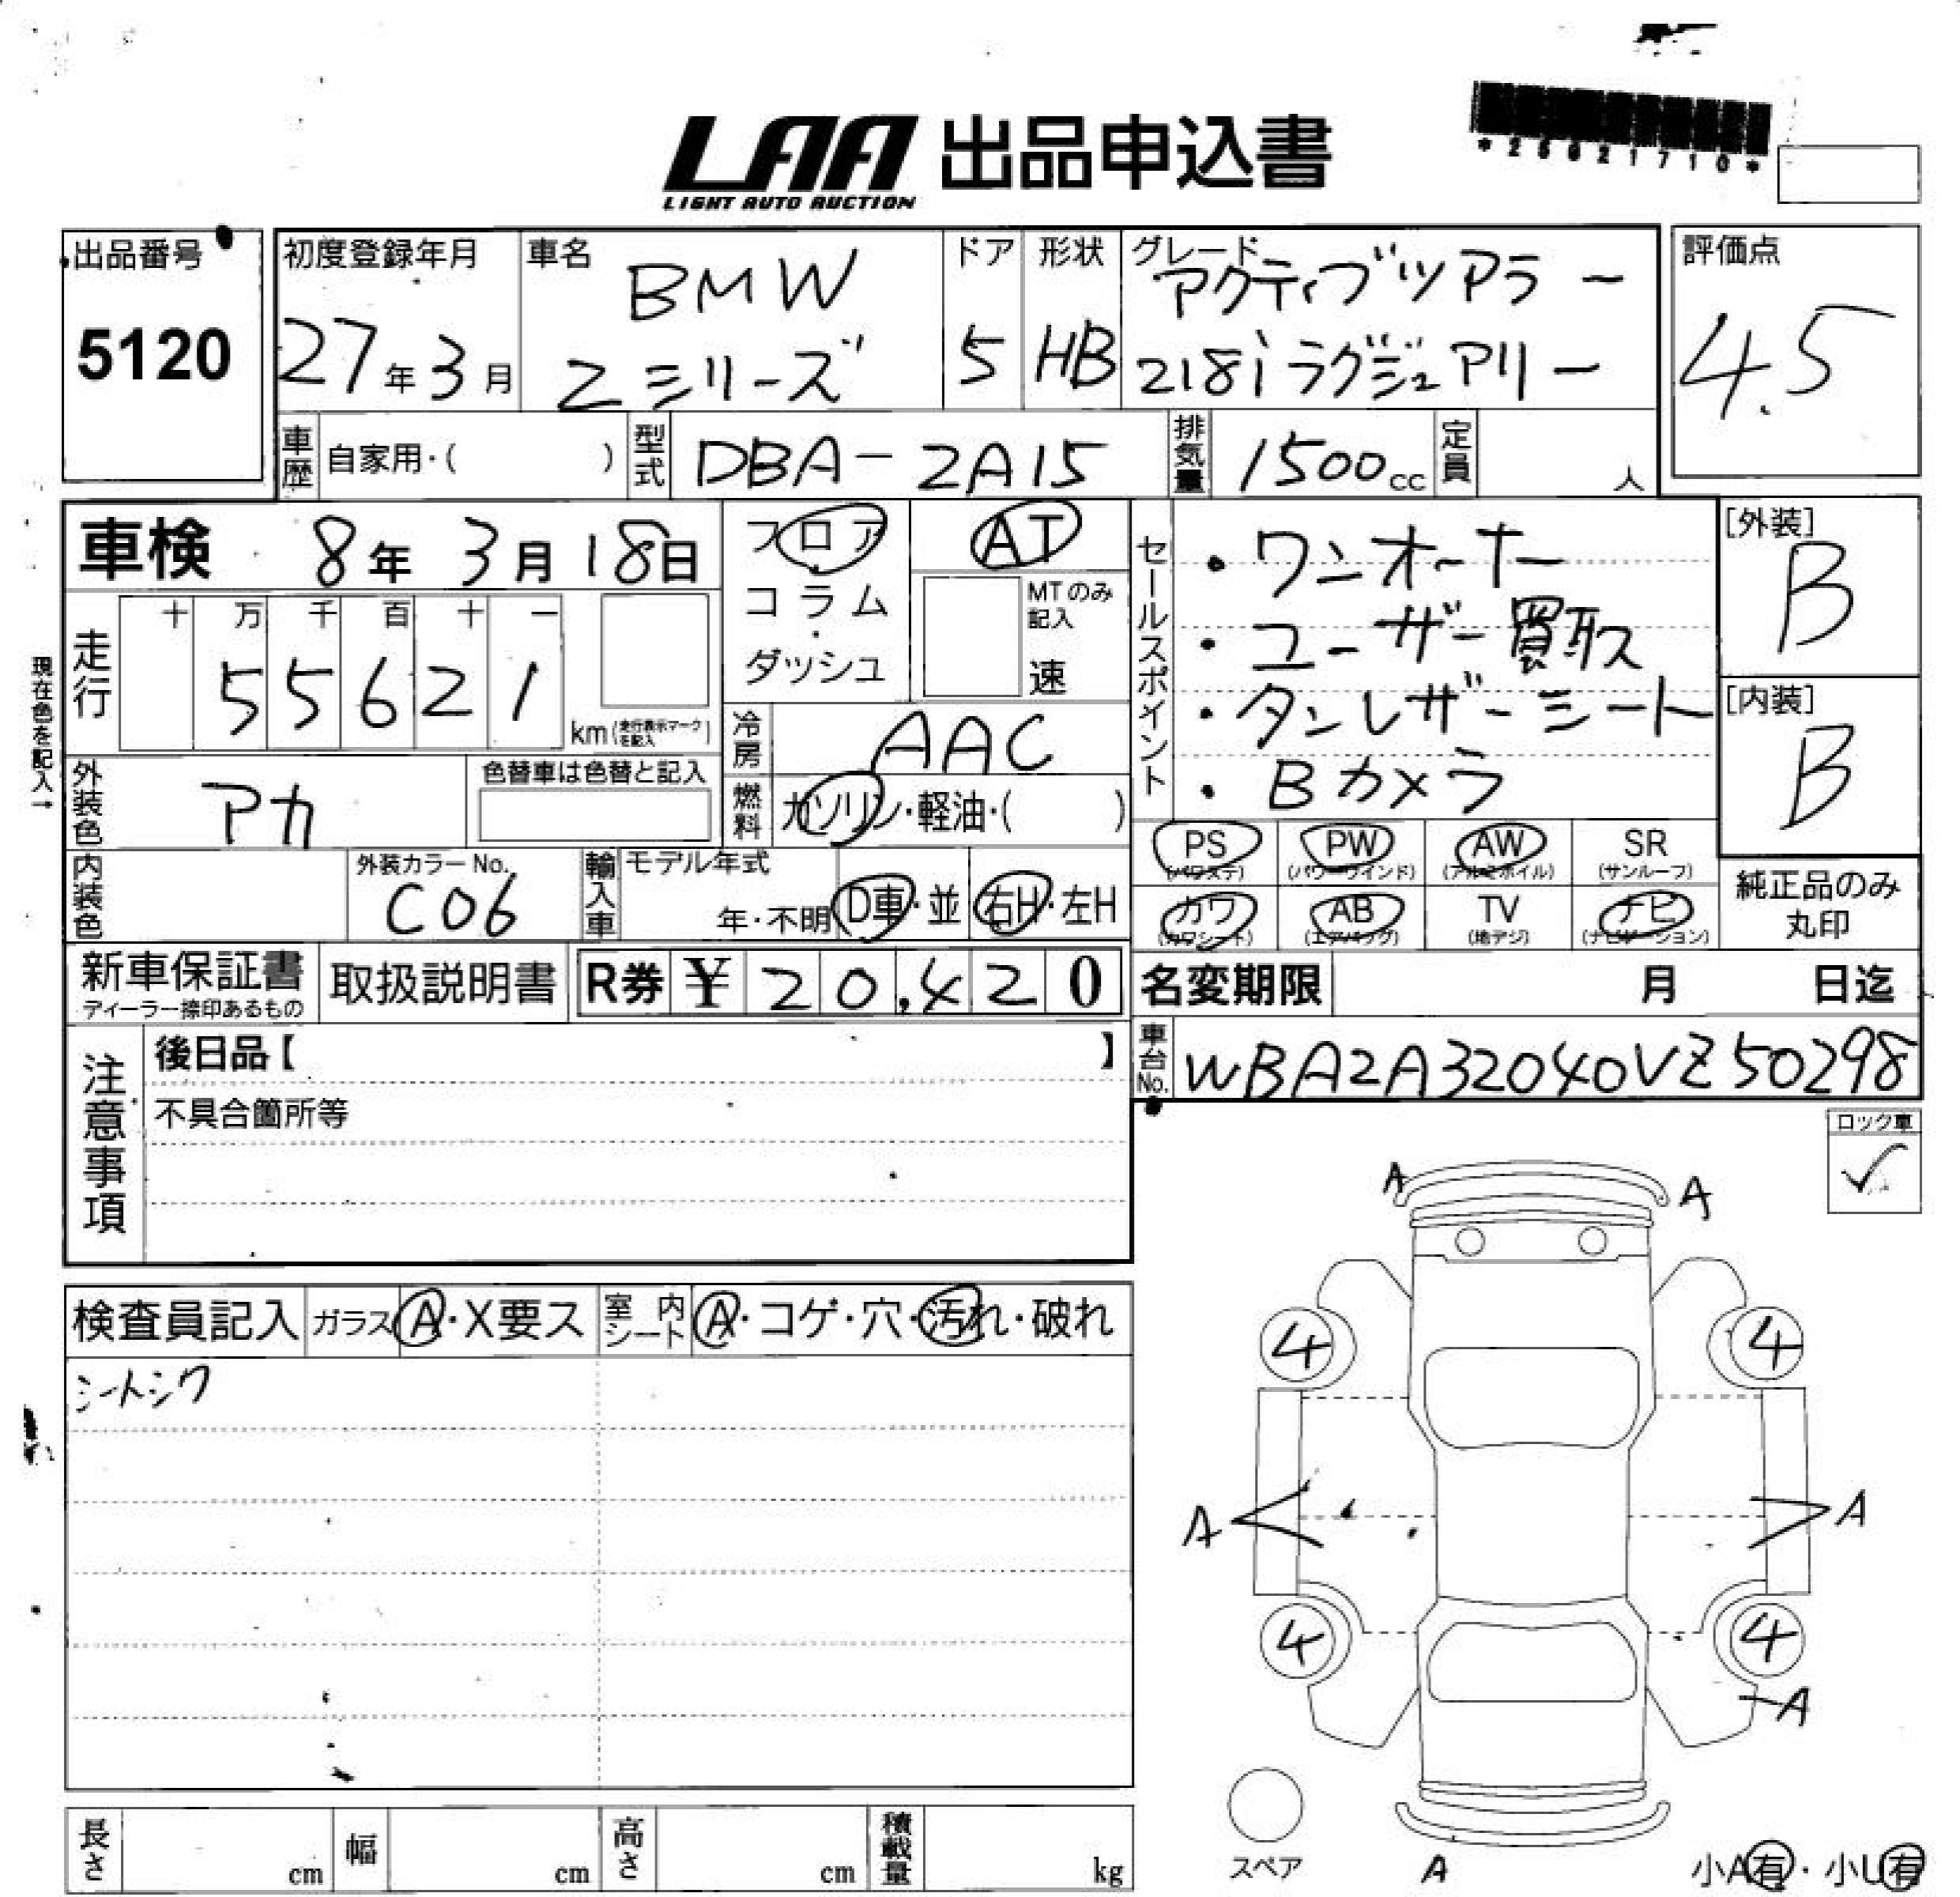 LAA 出品申込書
LIGHT AUTO AUCTION
*25621710*
出品番号
5120
初度登録年月
27年3月
車名
BMW
2シリーズ
ドア
5
形状
HB
グレード
アクティブツアラー
218iラグジュアリー
評価点
4.5
車歴
自家用・( )
型式
DBA-2A15
排気量
1500cc
定員
人
車検 8年 3月 18日
フロア
コラム
ダッシュ
AT
MTのみ記入
速
セールスポイント
・ワンオーナー
・ユーザー買取ス
・タンレザーシート
・Bカメラ
[外装]
B
[内装]
B
現在色を記入→
走行
十 万 千 百 十 一
5 5 6 2 1
km(走行表示マークを記入)
冷房
AAC
外装色
アカ
色替車は色替と記入
燃料
ガソリン・軽油・( )
内装色
外装カラーNo.
C06
輸入車
モデル年式
年・不明
D車・並
右H・左H
PS
(パワステ)
PW
(パワーウインド)
AW
(アルミホイル)
SR
(サンルーフ)
カワ
(カワシート)
AB
(エアバッグ)
TV
(地デジ)
ナビ
(ナビゲーション)
純正品のみ
丸印
新車保証書
ディーラー捺印あるもの
取扱説明書
R券 ¥ 20,420
名変期限 月 日迄
車台No.
WBA2A32040VZ50298
注意事項
後日品【 】
不具合箇所等
ロック車
✓
検査員記入
ガラス
A・X要ス
室内シート
A・コゲ・穴・汚れ・破れ
シートシワ
A A
4 4
A A
4 4
A
スペア
A
小A有・小U有
長さ cm
幅 cm
高さ cm
積載量 kg